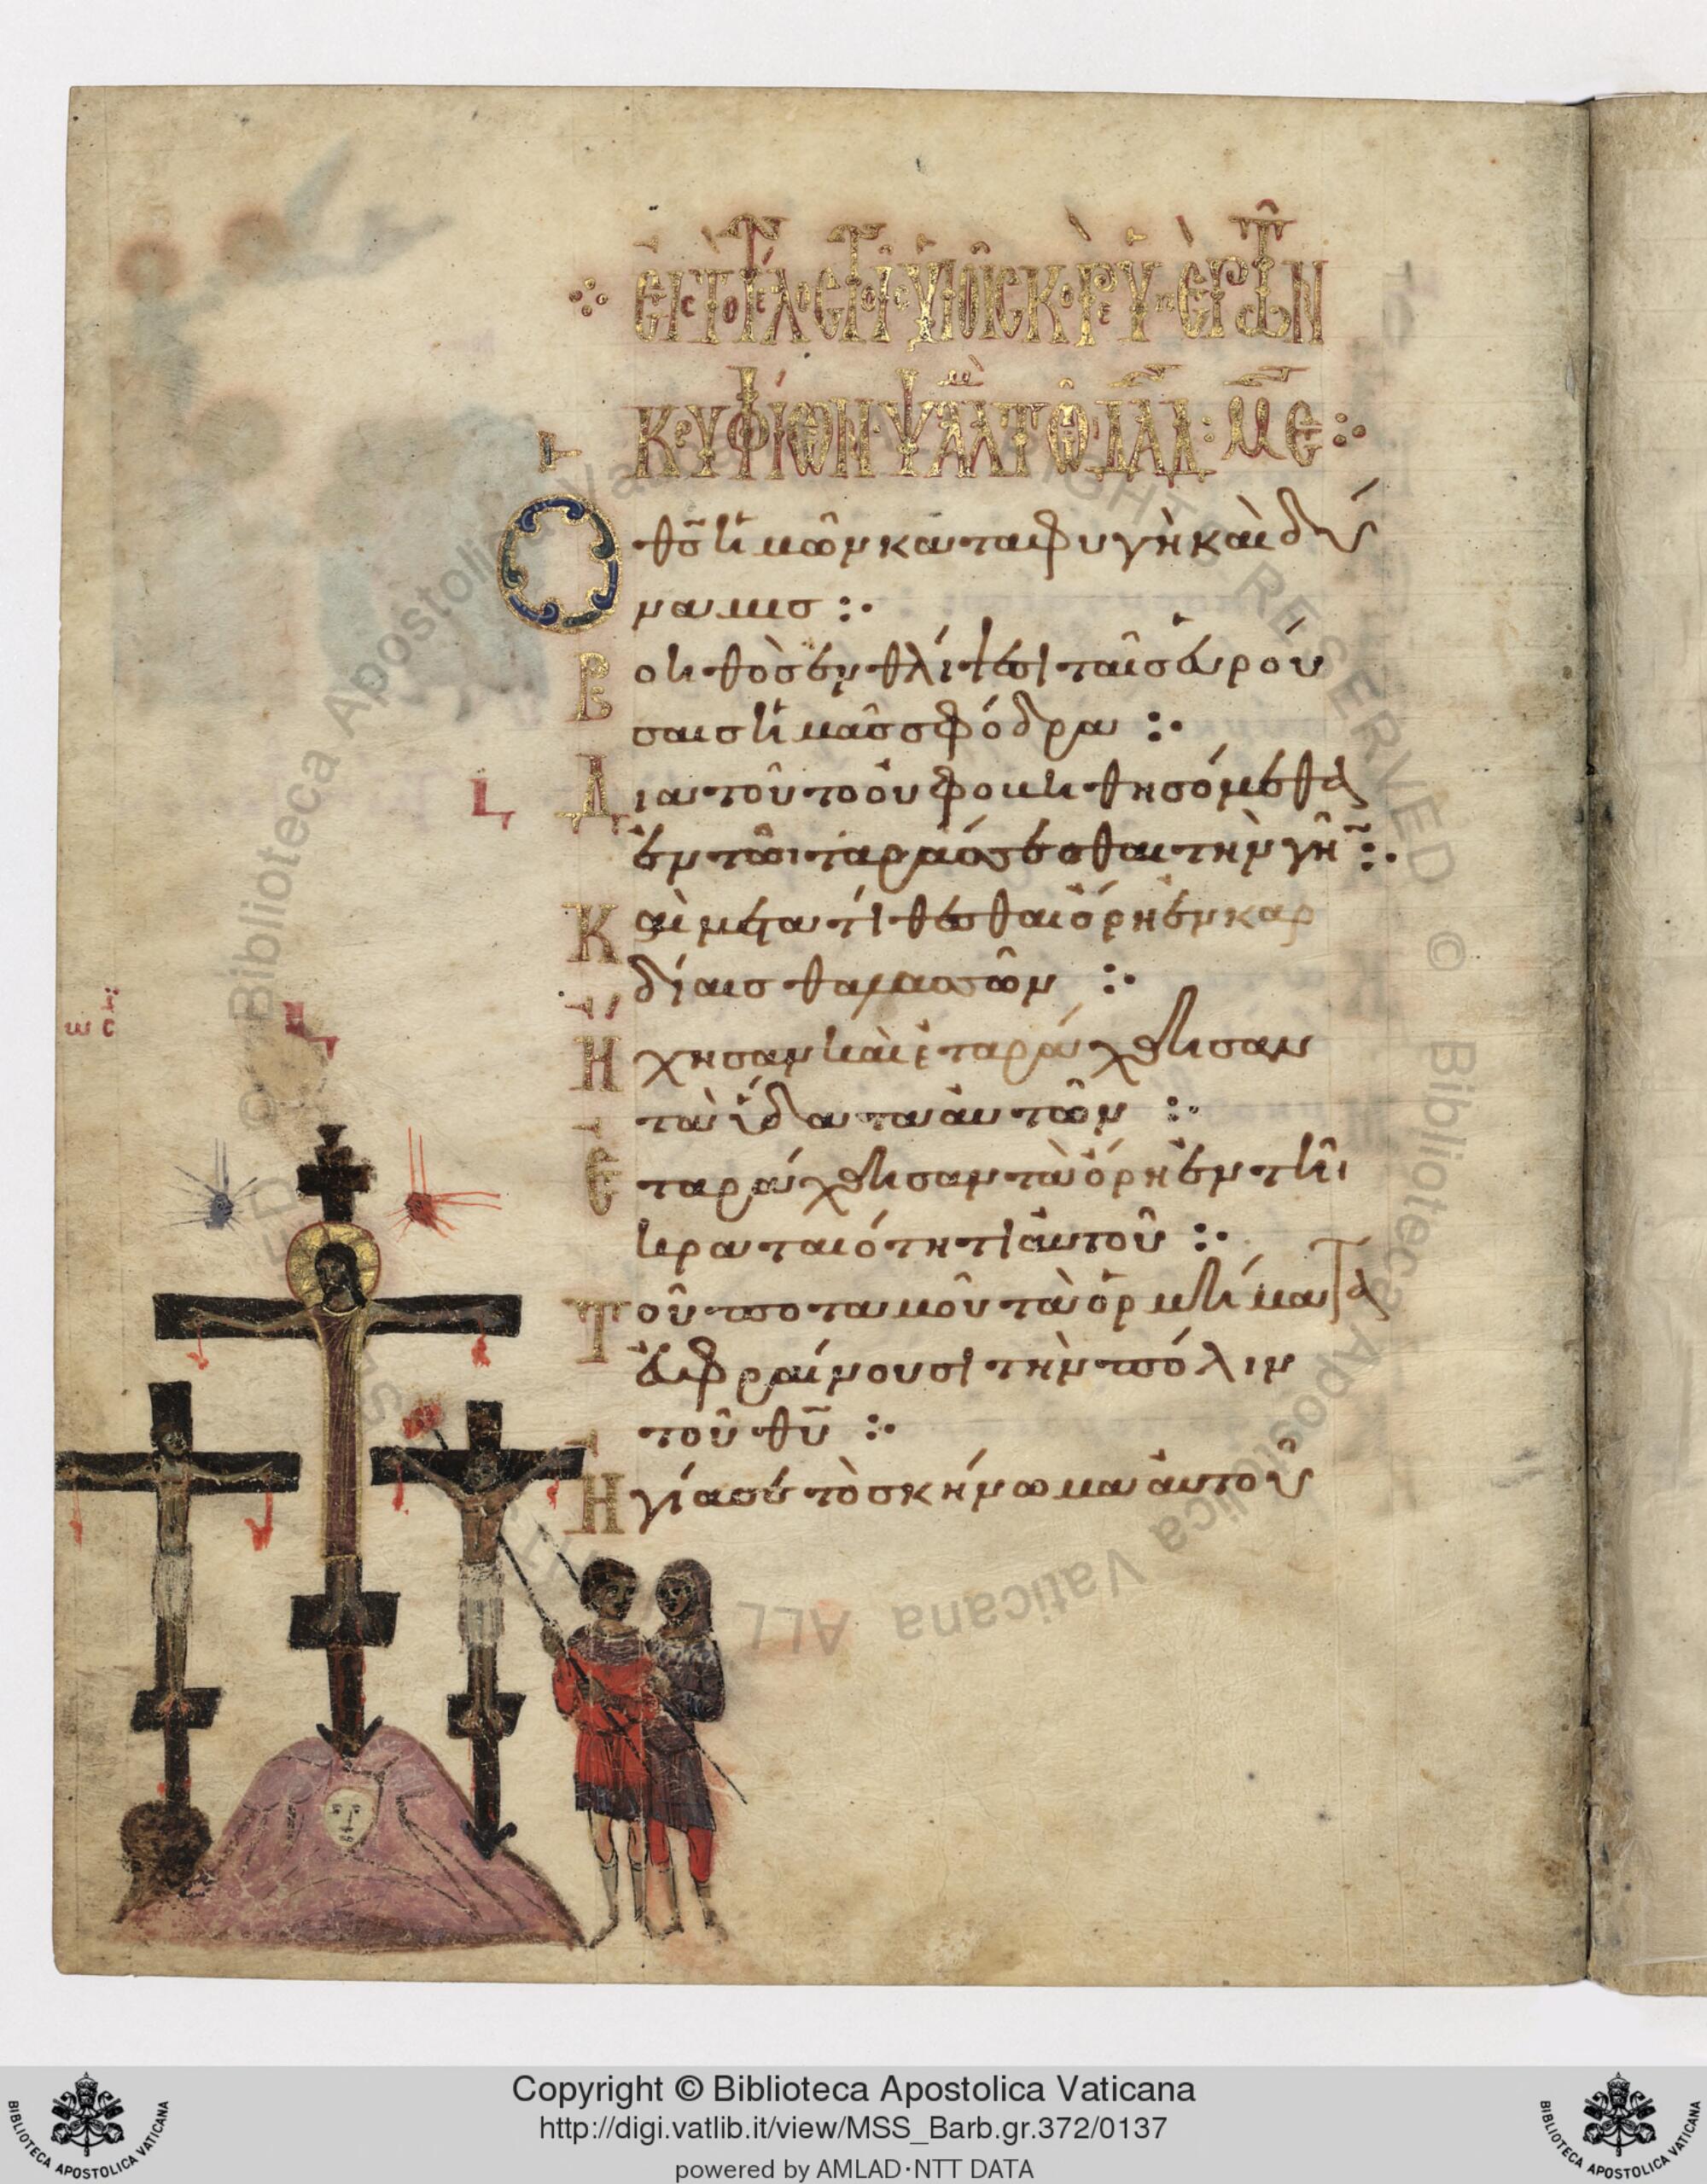 εἰς τὸ τέλος· ὑπὲρ τῶν υἱῶν κορέ· ὑπὲρ τῶν
κρυφίων· ψαλμὸς τῷ δαδ· με:
Ὁ θς̅ ἡμῶν καταφυγὴ καὶ δύ
ναμις :·
Βοηθὸς ἐν θλίψεσι ταῖς εὑρού
σαις ἡμᾶς σφόδρα :·
Διατοῦτο οὐ φοβηθησόμεθα
ἐν τῶι ταράσσεσθαι τὴν γῆν :·
Καὶ μετατίθεσθαι ὄρη ἐν καρ
δίαις θαλασσῶν :·
Ἤχησαν καὶ ἐταράχθησαν
τὰ ὕδατα αὐτῶν :·
Ἐταράχθησαν τὰ ὄρη ἐν τῆι
κραταιότητι αὐτοῦ :·
Τοῦ ποταμοῦ τὰ ὁρμήματα
εὐφραίνουσι τὴν πόλιν
τοῦ θυ̅ :·
Ἡγίασε τὸ σκήνωμα αὐτοῦ
Copyright © Biblioteca Apostolica Vaticana
http://digi.vatlib.it/view/MSS_Barb.gr.372/0137
powered by AMLAD·NTT DATA
BIBLIOTECA APOSTOLICA VATICANA
BIBLIOTECA APOSTOLICA VATICANA